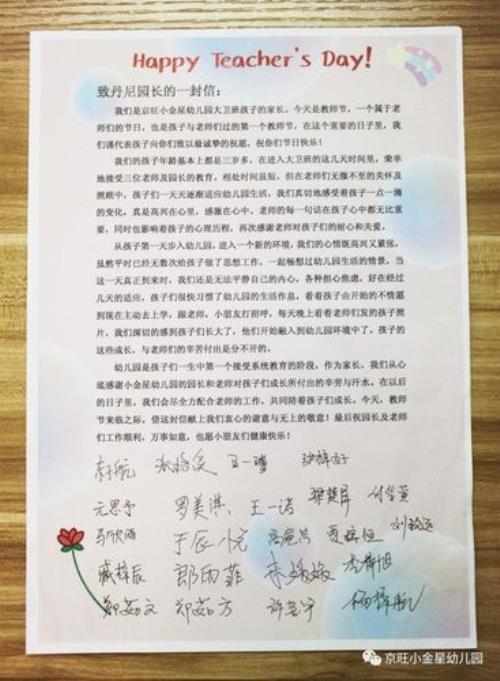 Happy Teacher's Day!
致丹尼园长的一封信：
我们是京旺小金星幼儿园大卫班孩子的家长，今天是教师节，一个属于老
师们的节日，也是孩子与老师们过的第一个教师节，在这个重要的日子里，我
们谨代表孩子向你们致以最诚挚的祝愿，祝你们节日快乐！
我们的孩子年龄基本上都是三岁多，在进入大卫班的这几天时间里，荣幸
地接受三位老师及园长的教育，相处时间虽短，但在老师们无微不至的关怀及
照顾中，孩子们一天天逐渐适应幼儿园生活，我们真切地感受着孩子一点一滴
的变化，真是高兴在心里，感激在心中，老师的每一句话在孩子心中都无比重
要，同时也影响着孩子的心理历程，再次感谢老师对孩子们的耐心和关爱。
从孩子第一天步入幼儿园，进入一个新的环境，我们的心情既高兴又紧张，
虽然平时已经无数次给孩子做了思想工作，一起畅想过幼儿园生活的情景，当
这一天真正到来时，我们还是无法平静自己的内心，各种担心焦虑，好在经过
几天的适应，孩子们很快习惯了幼儿园的生活作息，看着孩子由开始的不情愿
到现在主动去上学，跟老师、小朋友打招呼，每天晚上看着老师们发的孩子照
片，我们深切的感到孩子们长大了，他们开始融入到幼儿园环境中了，孩子的
这些成长，与老师们的辛苦付出是分不开的。
幼儿园是孩子们一生中第一个接受系统教育的阶段，作为家长，我们从心
底感谢小金星幼儿园的园长和老师对孩子们成长所付出的辛劳与汗水，在以后
的日子里，我们会尽全力配合老师的工作，共同陪着孩子们成长，今天，教师
节来临之际，借这封信献上我们衷心的谢意与无上的敬意！最后祝园长及老师
们工作顺利，万事如意，也愿小朋友们健康快乐！
元思予 罗美淇 王一诺
马欣雨 于辰小元
臧梓辰 郎雨菲
郑茹文 郑茹方
京旺小金星幼儿园